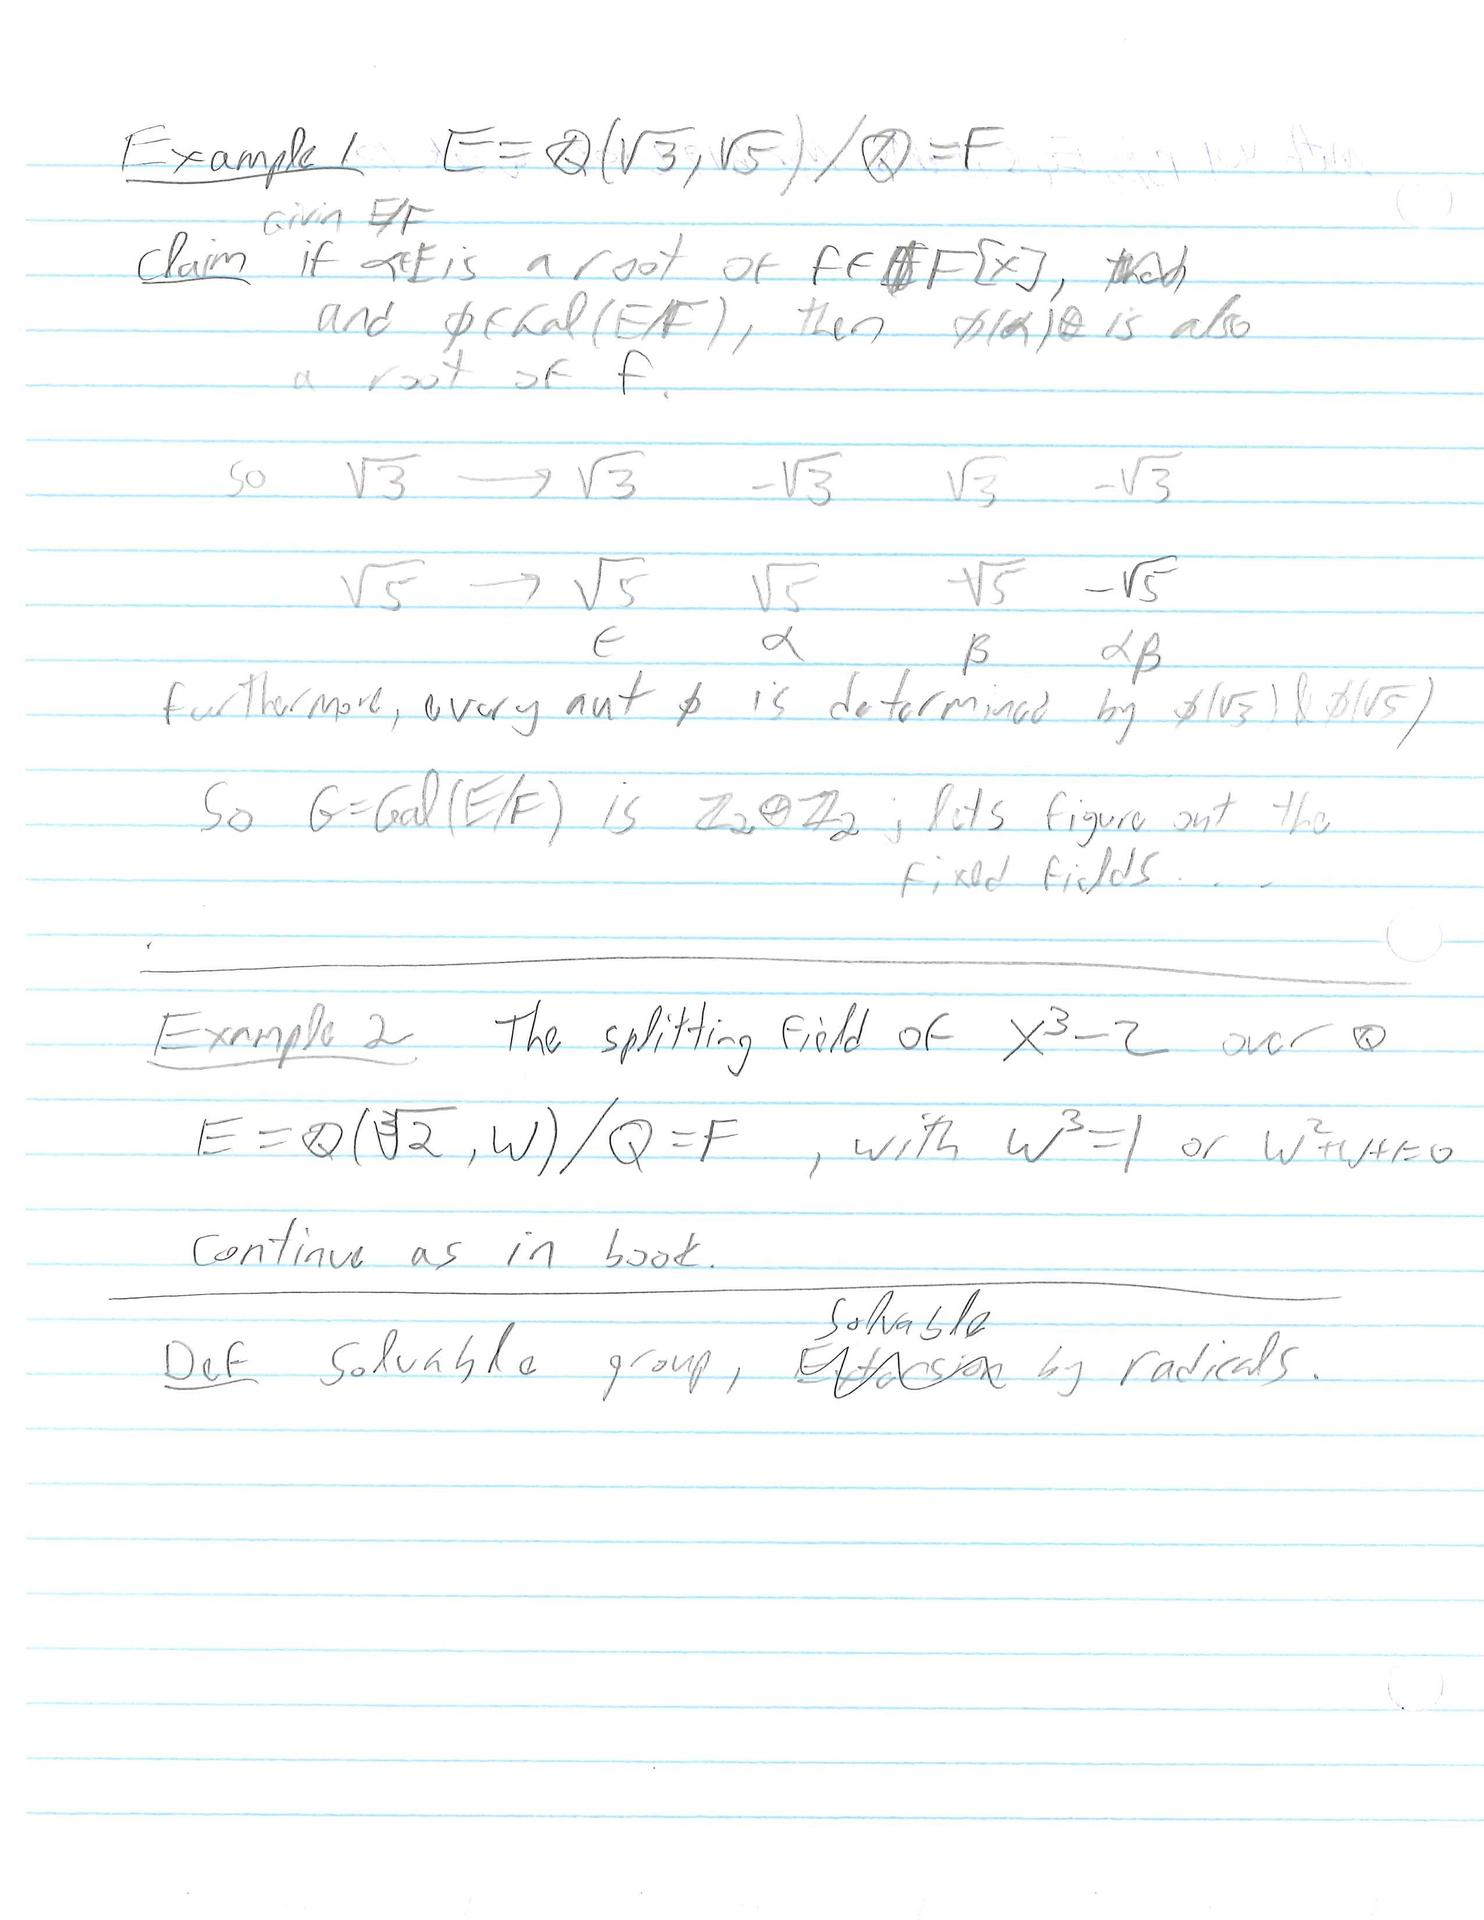 Example 1 E = ℚ(√3, √5) / ℚ = F
Givin E/F
Claim if α∈E is a root of f∈F[x],
and φ∈Gal(E/F), then φ(α) is also
a root of f.
So √3 → √3 -√3 √3 -√3
√5 → √5 √5 -√5 -√5
ϵ α β αβ
furthermore, every aut φ is determined by φ(√3) & φ(√5)
So G=Gal(E/F) is ℤ₂⊕ℤ₂ ; lets figure out the
fixed fields....
Example 2 The splitting field of x³-2 over ℚ
E = ℚ(∛2, w) / Q = F , with w³=1 or w²+w+1=0
continue as in book.
solvable
Def Solvable group, Extension by radicals.